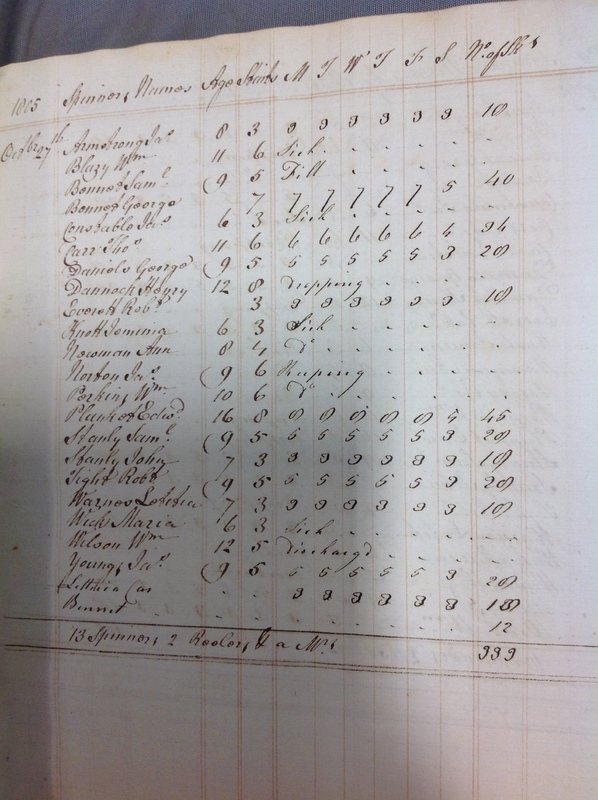 1805 Spinners Names Age Stints M T W T F S No. of Sks
Octbr 27th Armstrong Jas 8 3 3 3 3 3 3 3 18
Blazy Wm 11 6 Sick
Bennet Saml 8 5 Fill
Bennet George 7 7 7 7 7 7 5 40
Constable Jas 6 3 Sick
Carr Thos 11 6 6 6 6 6 6 4 34
Daniels George 8 5 5 5 5 5 5 3 28
Dannock Henry 12 8 Dropping
Everett Robt 3 3 3 3 3 3 3 18
Knott Jemima 6 3 Sick
Newman Ann 8 4 Do
Norton Jas 8 6 Reeping
Perkins Wm 10 6 Do
Edwd 16 8 8 8 8 8 8 5 45
Stanly Saml 8 5 5 5 5 5 5 3 28
Stanly John 7 3 3 3 3 3 3 3 18
Tight Robt 8 5 5 5 5 5 5 3 28
Warnes Letitia 7 3 3 3 3 3 3 3 18
Wick Maria 6 3 Sick
Wilson Wm 12 5 Dischargd
Youngs Jas 8 5 5 5 5 5 5 3 28
Lettitia Car 3 3 3 3 3 3 18
Bennet 12
13 Spinners 2 Reelers & a Mrs 333